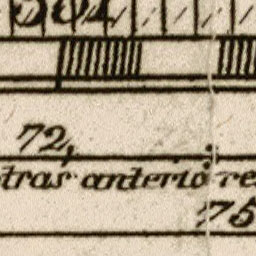 72,
tras anterio re
75